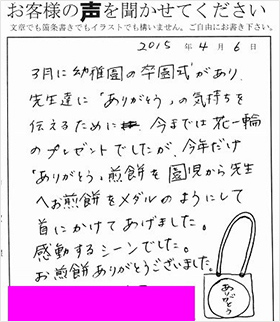 お客様の声を聞かせてください
文章でも箇条書きでもイラストでも構いません。ご自由にお書き下さい。
2015年4月6日
3月に幼稚園の卒園式があり、
先生達に「ありがとう」の気持ちを
伝えるために 今までは花一輪
のプレゼントでしたが、今年だけ
「ありがとう」煎餅を園児から先生
へお煎餅をメダルのようにして
首にかけてあげました。
感動するシーンでした。
お煎餅ありがとうございました。
ありがとう